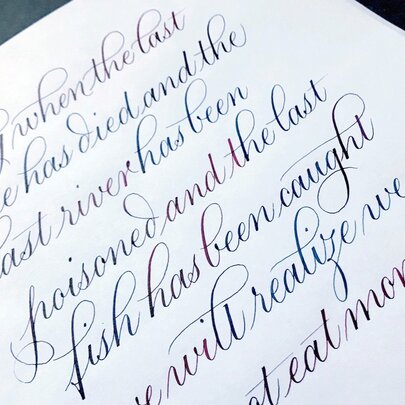 when the last
has died and the
last river has been
poisoned and the last
fish has been caught
will realize we
eat